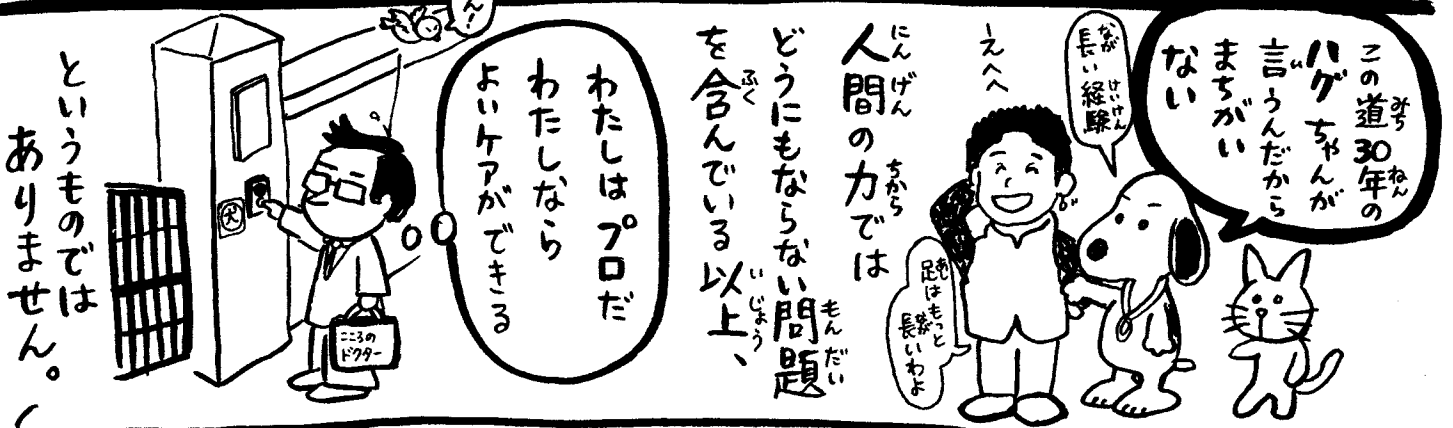 この道30年の
ハグちゃんが
言うんだから
まちがい
ない
長い経験
えへへ
足はもっと
長いわよ
人間の力では
どうにもならない問題
を含んでいる以上、
ん!
わたしはプロだ
わたしなら
よいケアができる
犬
こころの
ドクター
というものでは
ありません。